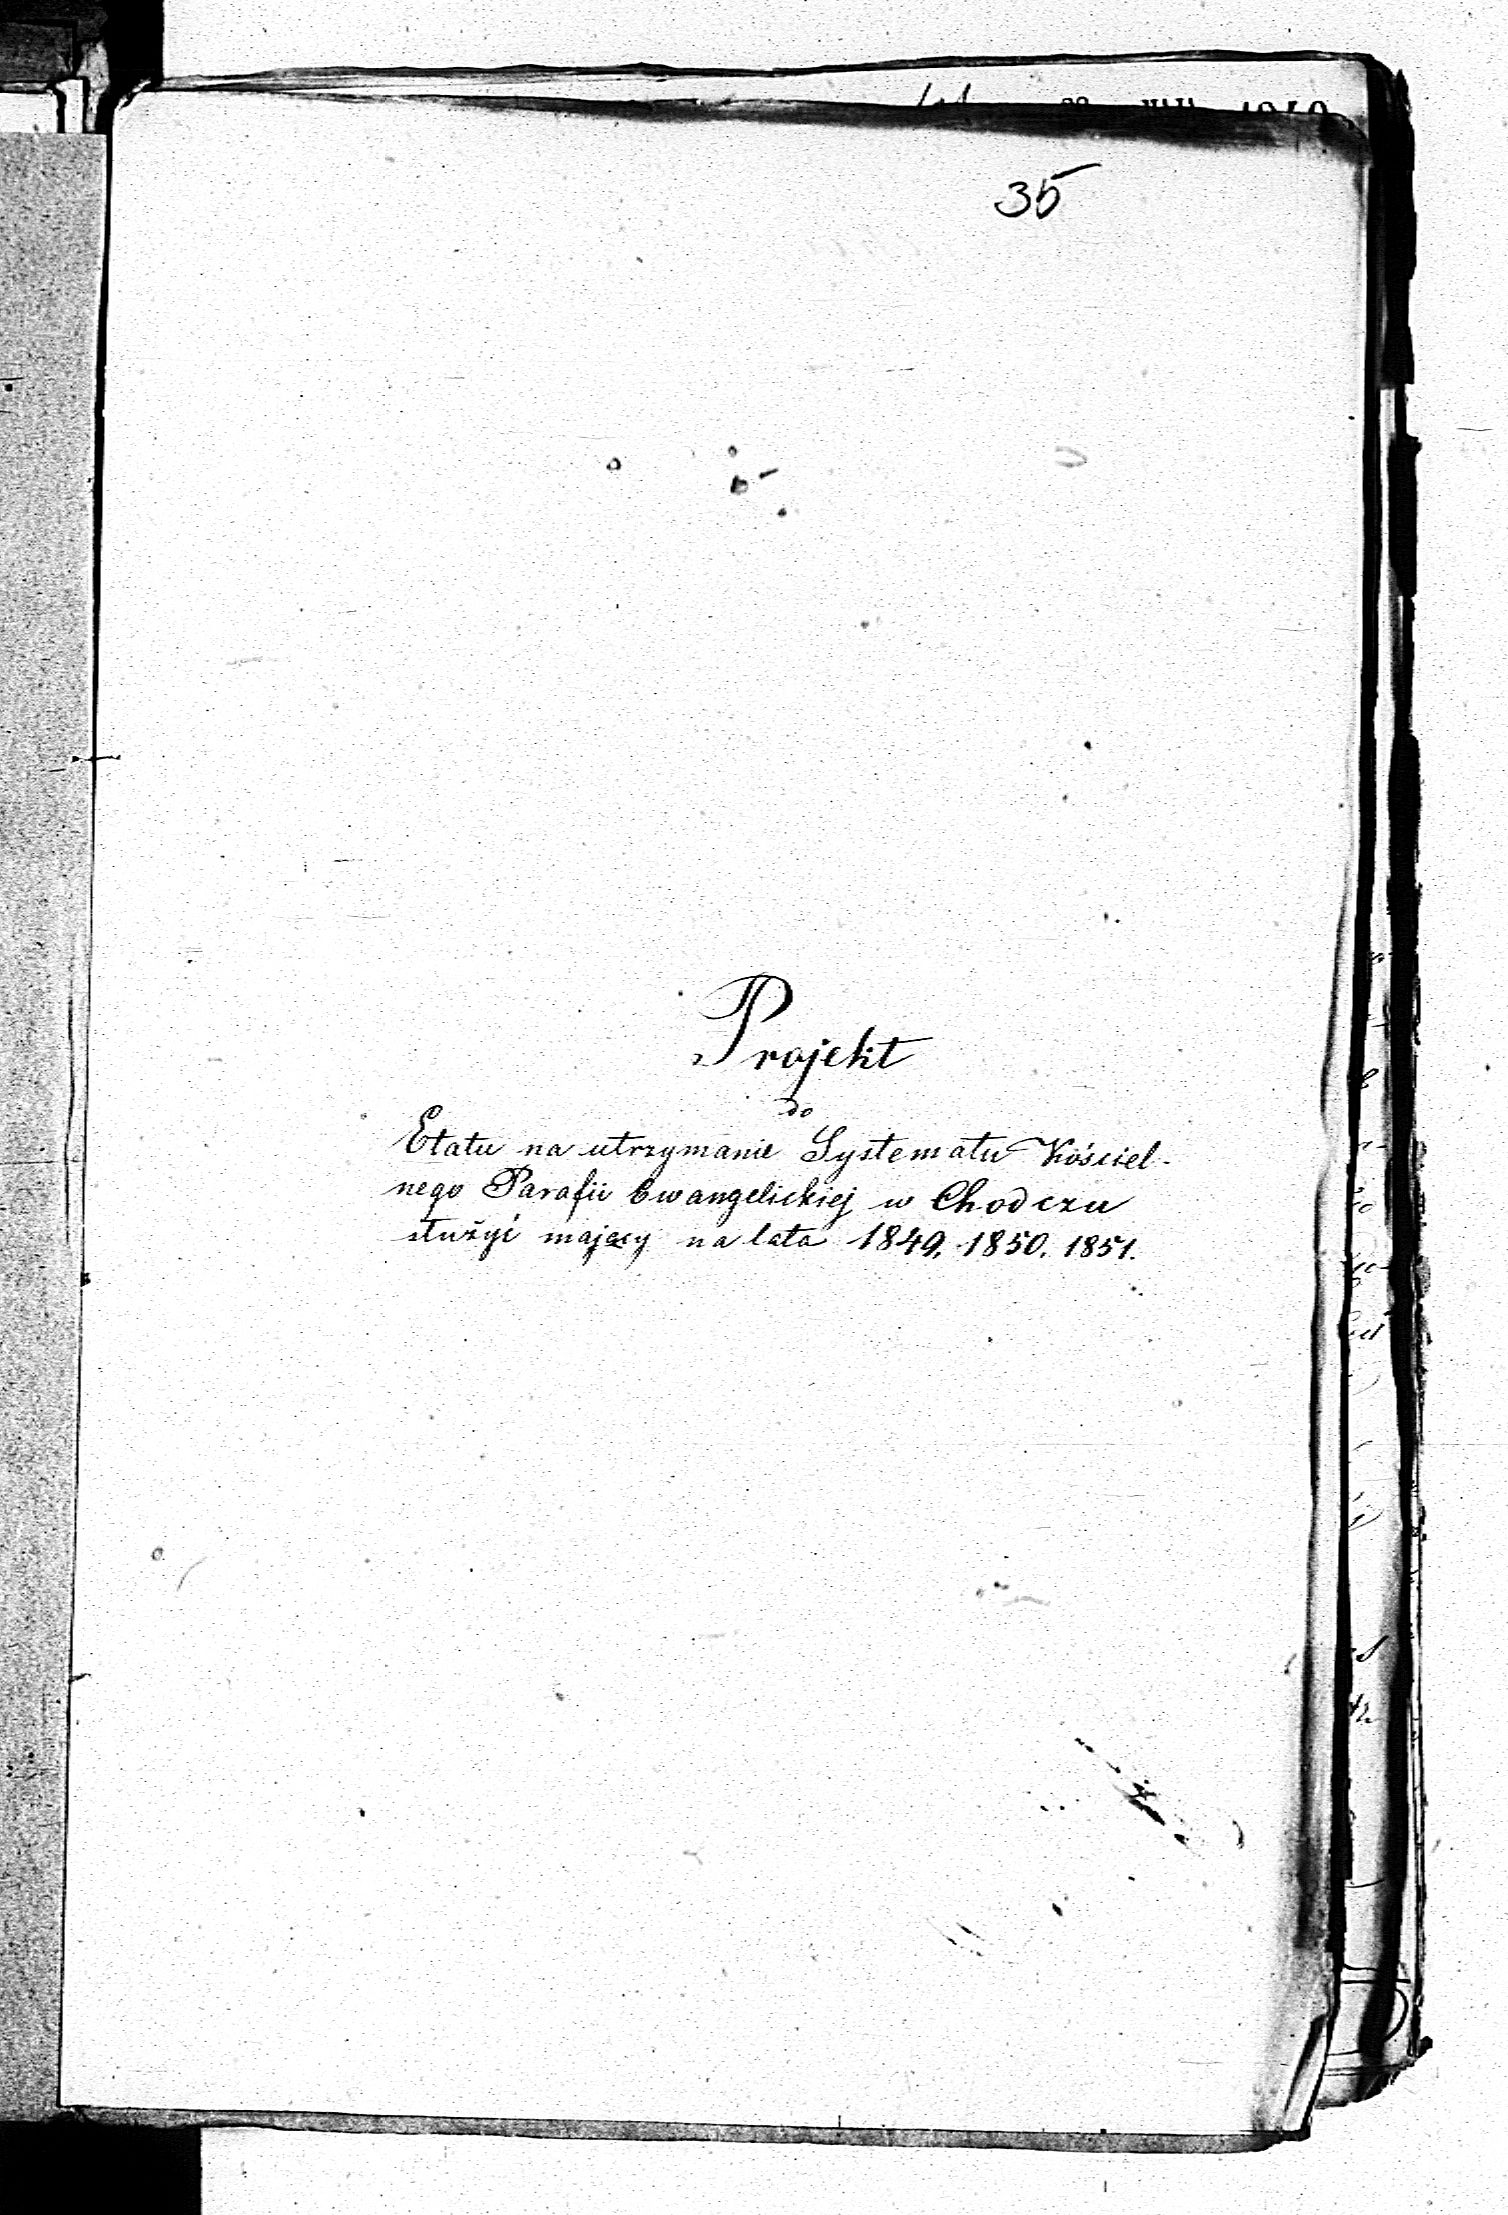 35
Projekt
do
Etatu na utrzymanie Systematu Kościel-
nego Parafii Ewangelickiej w Chodczu
służyć mający na lata 1849, 1850, 1851.